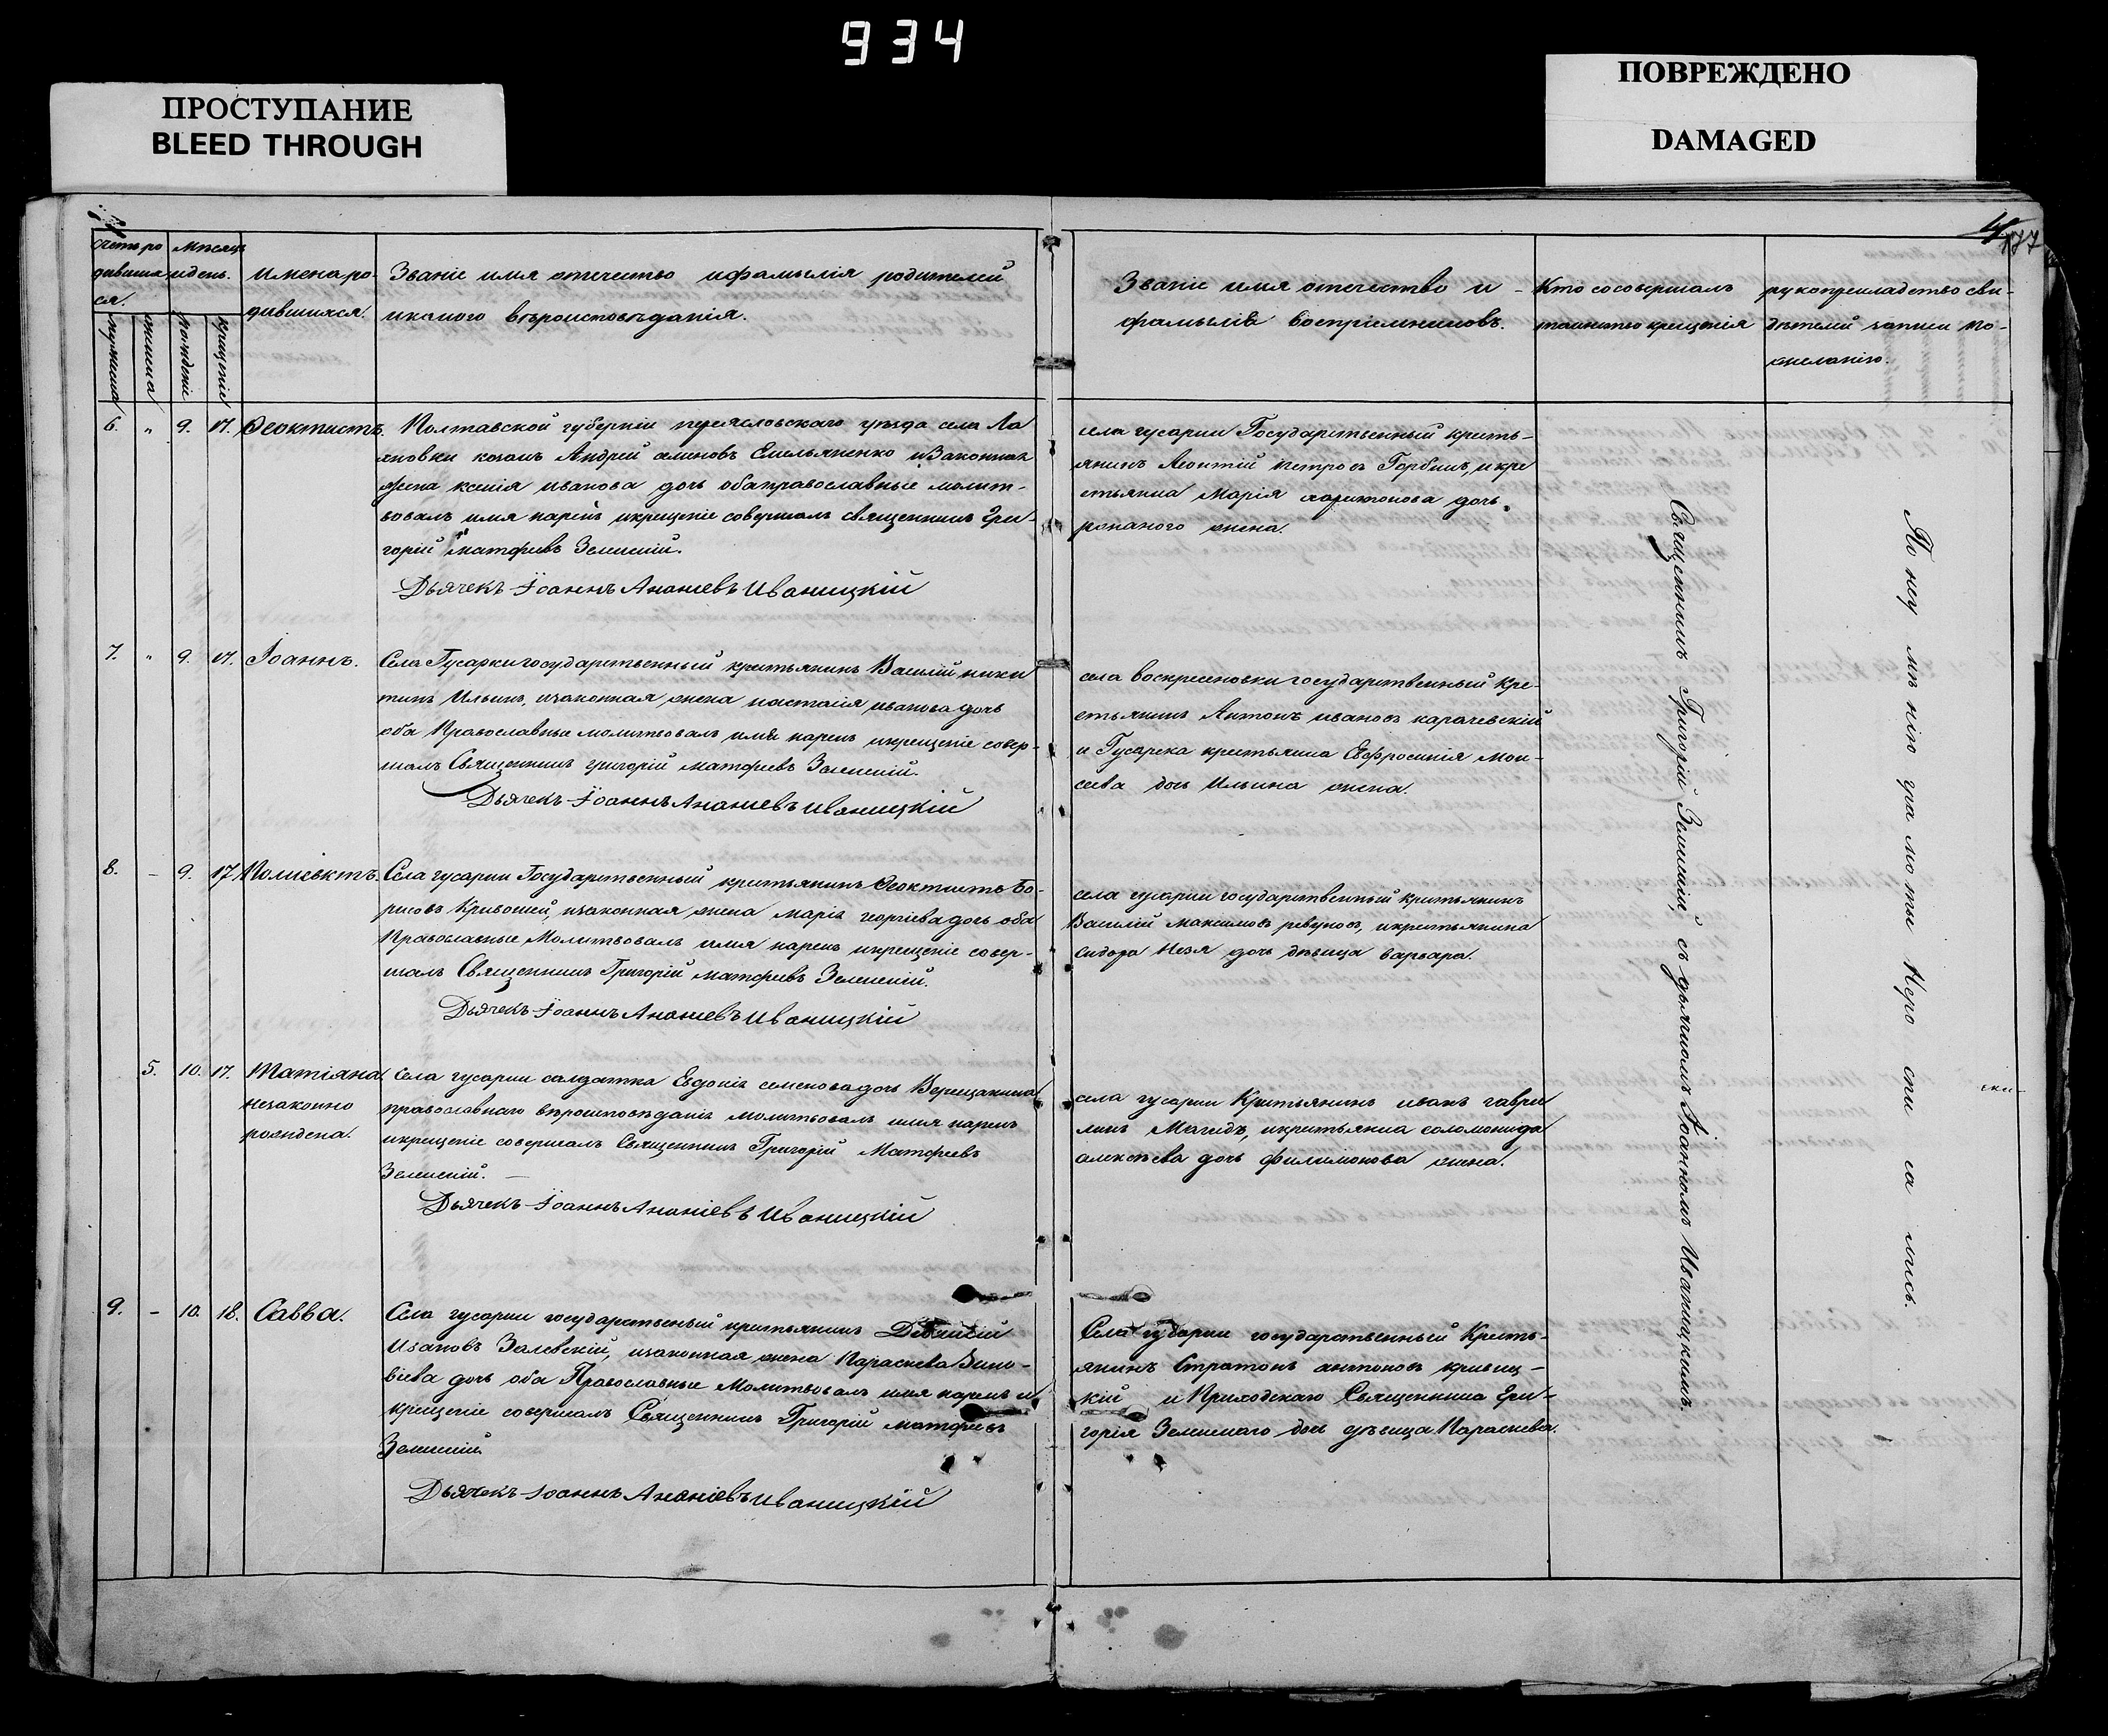 934
ПРОСТУПАНИЕ
BLEED THROUGH
ПОВРЕЖДЕНО
DAMAGED
177
счетъ ро
дивша
ся.
мужеска
женска
мѣсяцъ
и день.
рожденіе
крещеніе
имена ро-
дившихся.
Званіе имя отечество и фамилія родителей
и какого вѣроисповѣданія.
Званіе имя отечество и -
фамилія воспріемниковъ.
Кто совершалъ
таинство крещенія
рукоприкладство сви-
дѣтелей записи по-
желанію.
6. „ 9. 17. Феоктистъ.
Полтавской губерніи переяславскаго уѣзда села
козакъ Андрей Емельяненко и законная
жена ксенія иванова дочь оба православные молит-
вовалъ имя нарекъ и крещеніе совершалъ священникъ Гри-
горій матфіевъ Зеленскій.
Дьячекъ Іоаннъ Ананіевъ Иваницкій
села гусарки Государственный кресть-
янинъ Леонтій петровъ Горбикъ, и кре
стьянка Марія харитонова дочь
жена.
7. „ 9. 17. Іоаннъ.
Села Гусарки государственный крестьянинъ Василій ники
тинъ Ильинъ, и законная жена настасія иванова дочь
оба Православные молитвовалъ имя нарекъ и крещеніе совер-
шалъ Священникъ григорій матфіевъ Зеленскій.
Дьячекъ Іоаннъ Ананіевъ Иваницкій
села воскресеновки государственный кре-
стьянинъ Антонъ ивановъ карачевскій
и Гусарска крестьянка Евфросинія Мои-
сеева дочь Ильина жена.
8. - 9. 17 Поліевктъ.
Села гусарки Государственный крестьянинъ Феоктистъ Бо-
рисовъ Кривошей, и законная жена марія георгіева дочь оба
Православные Молитвовалъ имя нарекъ и крещеніе совер-
шалъ Священникъ Григорій матфіевъ Зеленскій.
Дьячекъ Іоаннъ Ананіевъ Иваницкій
села гусарки государственный крестьянинъ
Василій максимовъ ревуновъ, и крестьянина
Сидора дочь дѣвица варвара.
5. 10. 17. Татіана
незаконно
рождена.
Села гусарки салдатка Евдокія семенова дочь Верещакина
православнаго вѣроисповѣданія молитвовалъ имя нарекъ
и крещеніе совершалъ Священникъ Григорій Матфіевъ
Зеленскій. -
Дьячекъ Іоаннъ Ананіевъ Иваницкій
села гусарки Крестьянинъ иванъ гаври
линъ и крестьянка соломонида
алексѣева дочь филимонова жена.
9. - 10. 18. Савва.
Села гусарки государственый крестьянинъ
Ивановъ Залевскій, и законная жена Параскева Зино-
віева дочь оба Православные Молитвовалъ имя нарекъ и
крещеніе совершалъ Священникъ Григорій матфіевъ
Зеленскій.
Дьячекъ Іоаннъ Ананіевъ Иваницкій
Села гусарки государственный Кресть-
янинъ Стратонъ антоновъ кривиц-
кій и Приходскаго Священника Гри-
горія Зеленскаго дочь дѣвица Параскева.
Священникъ Григорій Зеленскій, съ дьячкомъ Іоанномъ Иваницкимъ.
По неу мѣ нію гра мо ты не ро спи са лись.